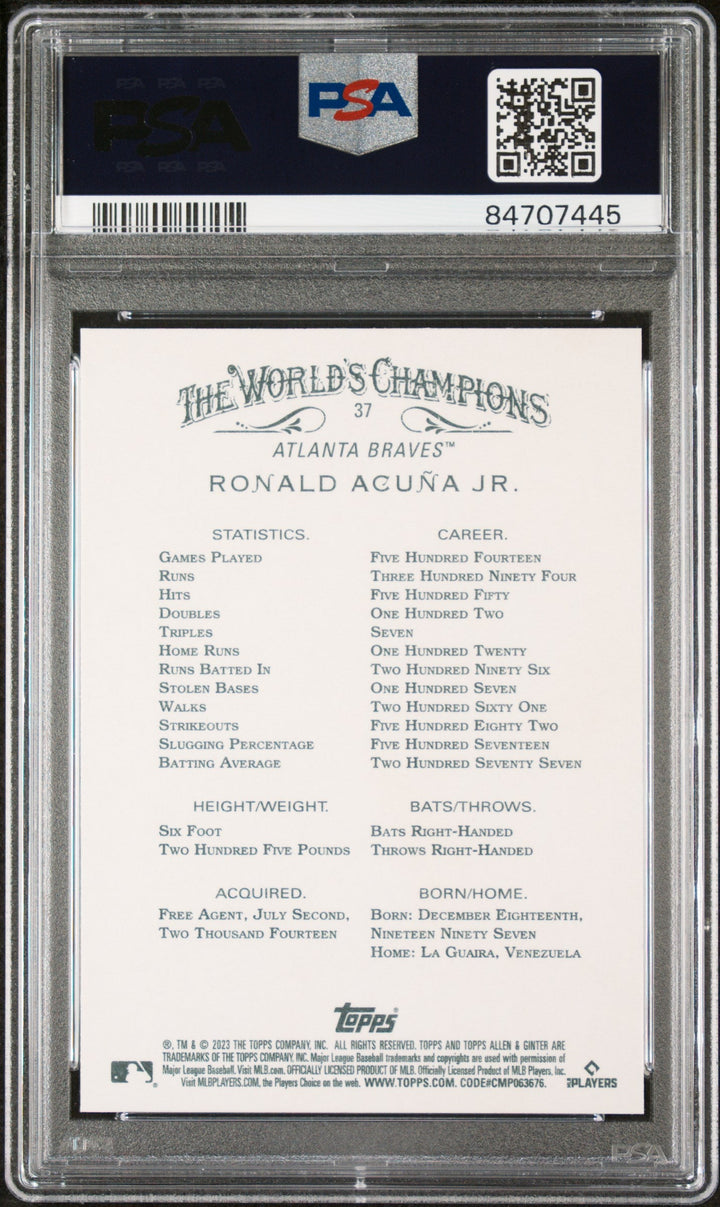 PSA PSA PSA
PSA
PSA PSA PSA
PSA
84707445
THE WORLD'S CHAMPIONS
37
ATLANTA BRAVES™
RONALD ACUÑA JR.
STATISTICS. CAREER.
GAMES PLAYED FIVE HUNDRED FOURTEEN
RUNS THREE HUNDRED NINETY FOUR
HITS FIVE HUNDRED FIFTY
DOUBLES ONE HUNDRED TWO
TRIPLES SEVEN
HOME RUNS ONE HUNDRED TWENTY
RUNS BATTED IN TWO HUNDRED NINETY SIX
STOLEN BASES ONE HUNDRED SEVEN
WALKS TWO HUNDRED SIXTY ONE
STRIKEOUTS FIVE HUNDRED EIGHTY TWO
SLUGGING PERCENTAGE FIVE HUNDRED SEVENTEEN
BATTING AVERAGE TWO HUNDRED SEVENTY SEVEN
HEIGHT/WEIGHT. BATS/THROWS.
SIX FOOT BATS RIGHT-HANDED
TWO HUNDRED FIVE POUNDS THROWS RIGHT-HANDED
ACQUIRED. BORN/HOME.
FREE AGENT, JULY SECOND, BORN: DECEMBER EIGHTEENTH,
TWO THOUSAND FOURTEEN NINETEEN NINETY SEVEN
HOME: LA GUAIRA, VENEZUELA
TOPPS®
®, TM & © 2023 THE TOPPS COMPANY, INC. ALL RIGHTS RESERVED. TOPPS AND TOPPS ALLEN & GINTER ARE
TRADEMARKS OF THE TOPPS COMPANY, INC. Major League Baseball trademarks and copyrights are used with permission of
Major League Baseball. Visit MLB.com. OFFICIALLY LICENSED PRODUCT OF MLB. Officially Licensed Product of MLB Players, Inc.
Visit MLBPLAYERS.COM, the Players Choice on the web. WWW.TOPPS.COM. CODE#CMP063676.
PLAYERS
PSA